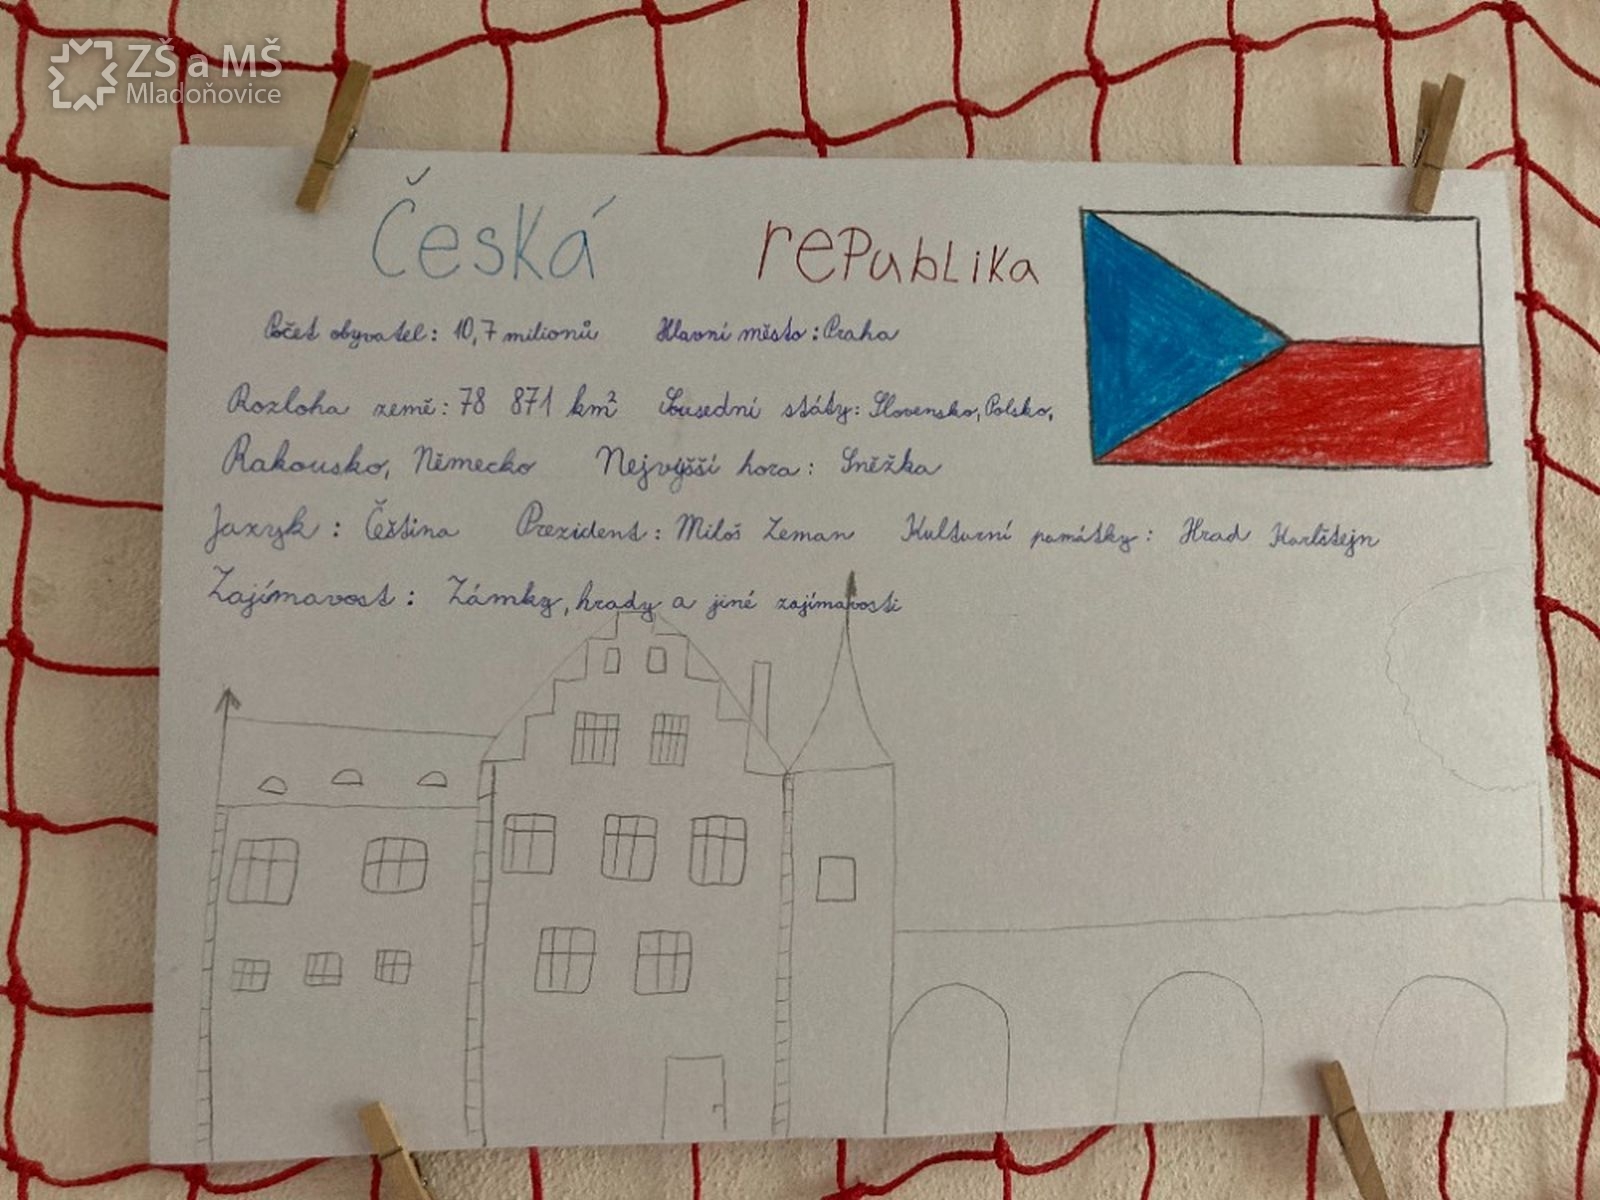 ZŠ a MŠ
Mladoňovice
Česká republika
Počet obyvatel: 10,7 milionů Hlavní město: Praha
Rozloha země: 78 871 km² Sousední státy: Slovensko, Polsko,
Rakousko, Německo Nejvyšší hora: Sněžka
Jazyk: Čeština Prezident: Miloš Zeman Kulturní památky: Hrad Karlštejn
Zajímavost: Zámky, hrady a jiné zajímavosti